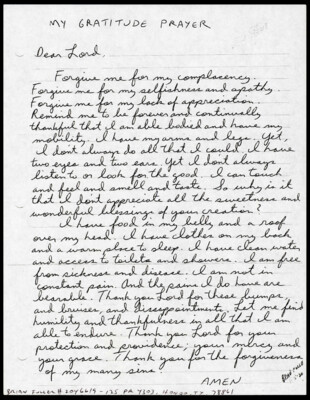 MY GRATITUDE PRAYER
Dear Lord,
Forgive me for my complacency.
Forgive me for my selfishness and apathy.
Forgive me for my lack of appreciation.
Remind me to be forever and continually
thankful that I am able bodied and have my
mobility. I have my arms and legs. Yet,
I don't always do all that I could. I have
two eyes and two ears. Yet I don't always
listen to or look for the good. I can touch
and feel and smell and taste. So why is it
that I don't appreciate all the sweetness and
wonderful blessings of your creation?
I have food in my belly and a roof
over my head. I have clothes on my back
and a warm place to sleep. I have clean water
and access to toilets and showers. I am free
from sickness and disease. I am not in
constant pain. And the pains I do have are
bearable. Thank you Lord for these bumps
and bruises, and disappointments. Let me find
humility and thankfulness in all that I am
able to endure. Thank you Lord for your
protection and providence, your mercy and
your grace. Thank you for the forgiveness
of my many sins.
AMEN